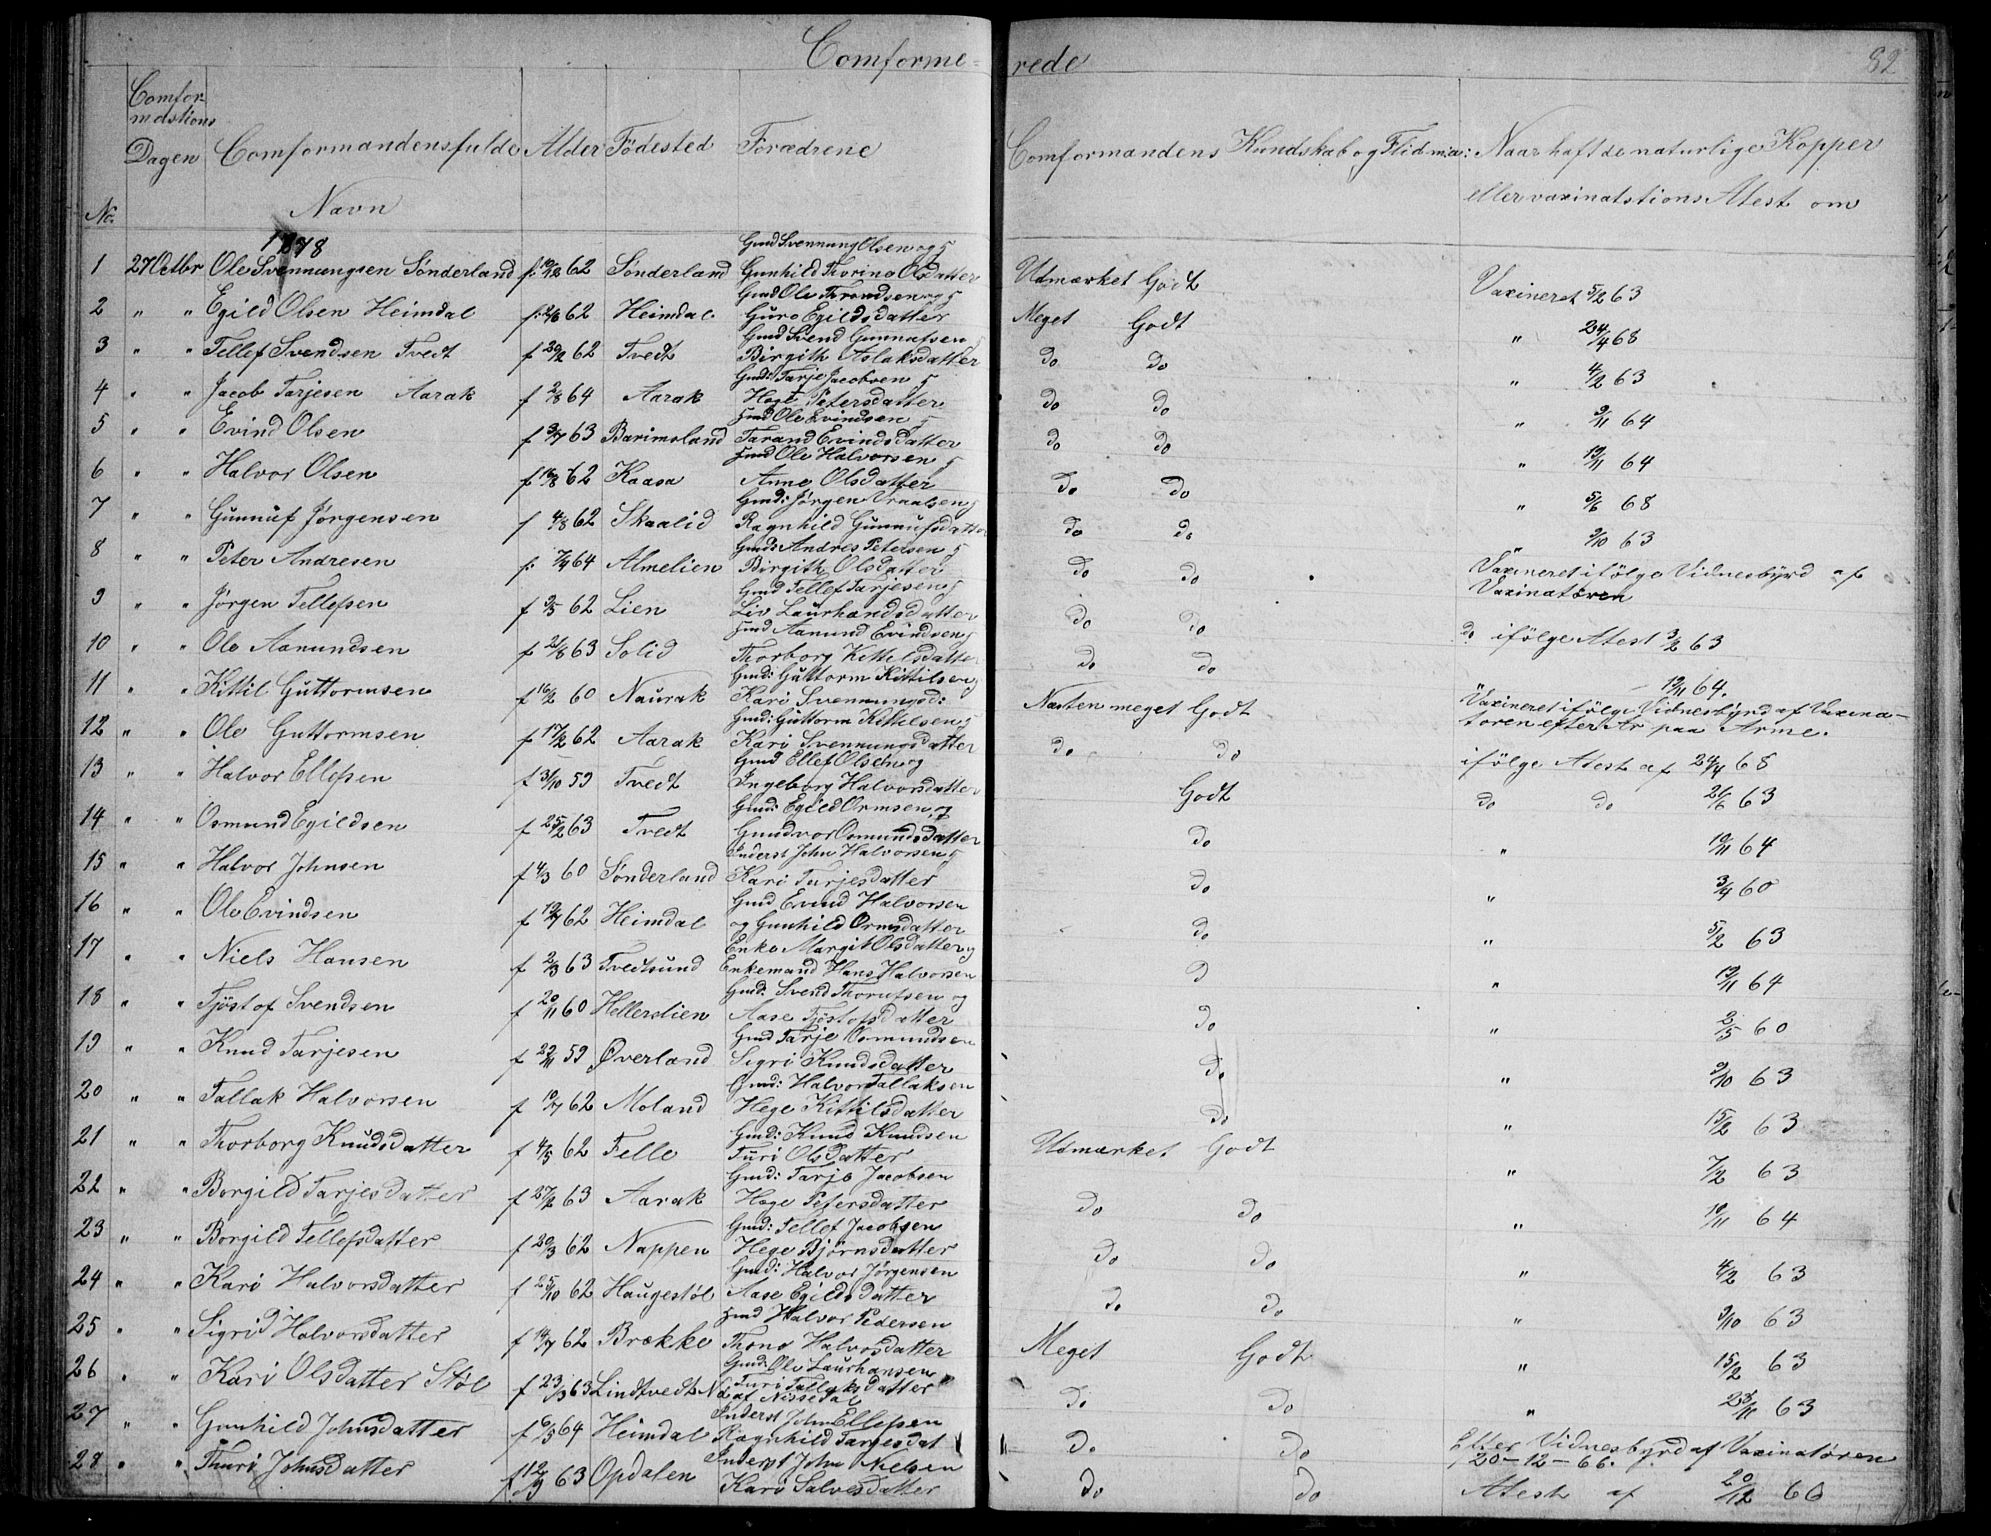 Comforme-rede 82
No. Comformations Dagen Comformandensfulde Navn Alder Fødested Forædrene Comformandens Kundskab og Flid m.a: Naar haft de naturlige Kopper eller vaxinatstions Atest om
1878
Gmd Svennung Olsen og
1 27 Octbr Ole Svennungsen Sønderland f: 62 Sønderland Gunhild Thorine Olsdatter Udmærket Godt Vaxineret 5/2 63
Gmd Ole Trondsen og
2 " " Egild Olsen Heimdal f: 62 Heimdal Guro Egildsdatter Meget Godt " 24/4 68
Gmd Svend Gunnufsen
3 " " Tellef Svendsen Tvedt f 62 Tvedt Birgith Aslaksdatter do do " 4/2 63
Gmd: Tarje Jacobsen
4 " " Jacob Tarjesen Aarak f 2/8 64 Aarak Hege Petersdatter do do " 9/11 64
Hmd Ole Evindsen
5 " " Evind Olsen f 3/7 63 Barimsland Tarand Evindsdatter do do " 64
Hmd Ole Halvorsen
6 " " Halvor Olsen f 62 Kaasa Anne Olsdatter do do " 5/6 68
Gmd: Jørgen Vraalsen
7 " " Gunnuf Jørgensen f 4/8 62 Skaalid Ragnhild Gunnufsdatter do do " 9/10 63
Gmd: Andres Petersen
8 " " Peter Andresen f: 64 Almelien Birgith Olsdatter do do Vaxineret ifølge Vidnesbyrd af Vaxinatøren
Gmd Tellef Tarjesen
9 " " Jørgen Tellefsen f 62 Lien Liv Laurhansdatter do do do ifølge Atest 3/2 63
Hmd Aanund Evindsen
10 " " Ole Aanundsen f 63 Solid Thorborg Kittilsdatter do do " 64.
Gmd: Guttorm Kittilsen
11 " " Kittil Guttormsen f 16/2 60 Naurak Kari Svennungsd: Næsten meget Godt Vaxineret ifølge Vidnesbyrd af Vaxinatoren efter Ar paa Arme.
Gmd: Guttorm Kittelsen
12 " " Ole Guttormsen f 17/2 62 Aarak Kari Svennungsdatter do do ifølge Atest af 24/4 68
Gmd Ellef Olsen og
13 " " Halvor Ellefsen f 59 Tvedt Ingeborg Halvorsdatter Godt do do 63
Gmd: Egild Ormsen og
14 " " Osmund Egildsen f 25/2 63 Tvedt Gundvor Osmundsdatter do " 64
Inderst John Halvorsen
15 " " Halvor Johnsen f 4/3 60 Sønderland Kari Tarjesdatter do " 3/4 60
Gmd Evind Halvorsen
16 " " Ole Evindsen f 62 Heimdal og Gunhild Ormsdatter do " 5/2 63
Enke Margit Olsdatter og
17 " " Niels Hansen f 2/3 63 Tvedtsund Enkemand Hans Halvorsen D " 64
Gmd: Svend Thorufsen og
18 " " Tjøstof Svendsen f 20/11 60 Hellerslien Aase Tjøstofsdatter do " 2/5 60
Gmd Tarje Osmundsen
19 " " Knud Tarjesen f 59 Øverland Sigri Knudsdatter do " 9/10 63
Gmd: Halvor Tallaksen
20 " " Tallak Halvorsen f 62 Moland Hege Kittilsdatter do " 15/2 63
Gmd: Knud Knudsen
21 " " Thorborg Knudsdatter f 4/5 62 Felle Turi Olsdatter Udmærket Godt " 7/2 63
Gmd: Tarje Jacobsen
22 " " Borgild Tarjesdatter f 27/2 63 Aarak Hege Petersdatter do do " 64
Gmd: Tellef Jacobsen
23 " " Borgild Tellefsdatter f 20/3 62 Nappen Hege Bjørnsdatter do do " 4/2 63
Gmd: Halvor Jørgensen
24 " " Kari Halvorsdatter f 25/10 62 Haugestøl Aase Egildsdatter do do " 9/10 63
Hmd Halvor Pedersen
25 " " Sigrid Halvorsdatter f 14/7 62 Brække Thone Halvorsdatter Meget Godt " 15/2 63
Gmd: Ole Laurhansen
26 " " Kari Olsdatter Støl f 23/3 63 Lindtvedt Turi Tallaksdatter af Nissedal do do " 63
Inderst John Ellefsen
27 " " Gunhild Johnsdatter f 6/5 64 Heimdal Ragnhild Tarjesdat do do Efter Vidnesbyrd af Vaxinatøren 20-12-66.
Inderst John Nielsen
28 " " Thuri Johnsdatter f 12/9 63 Opdalen Kari Salvesdatter do do Atest af 20/12 66